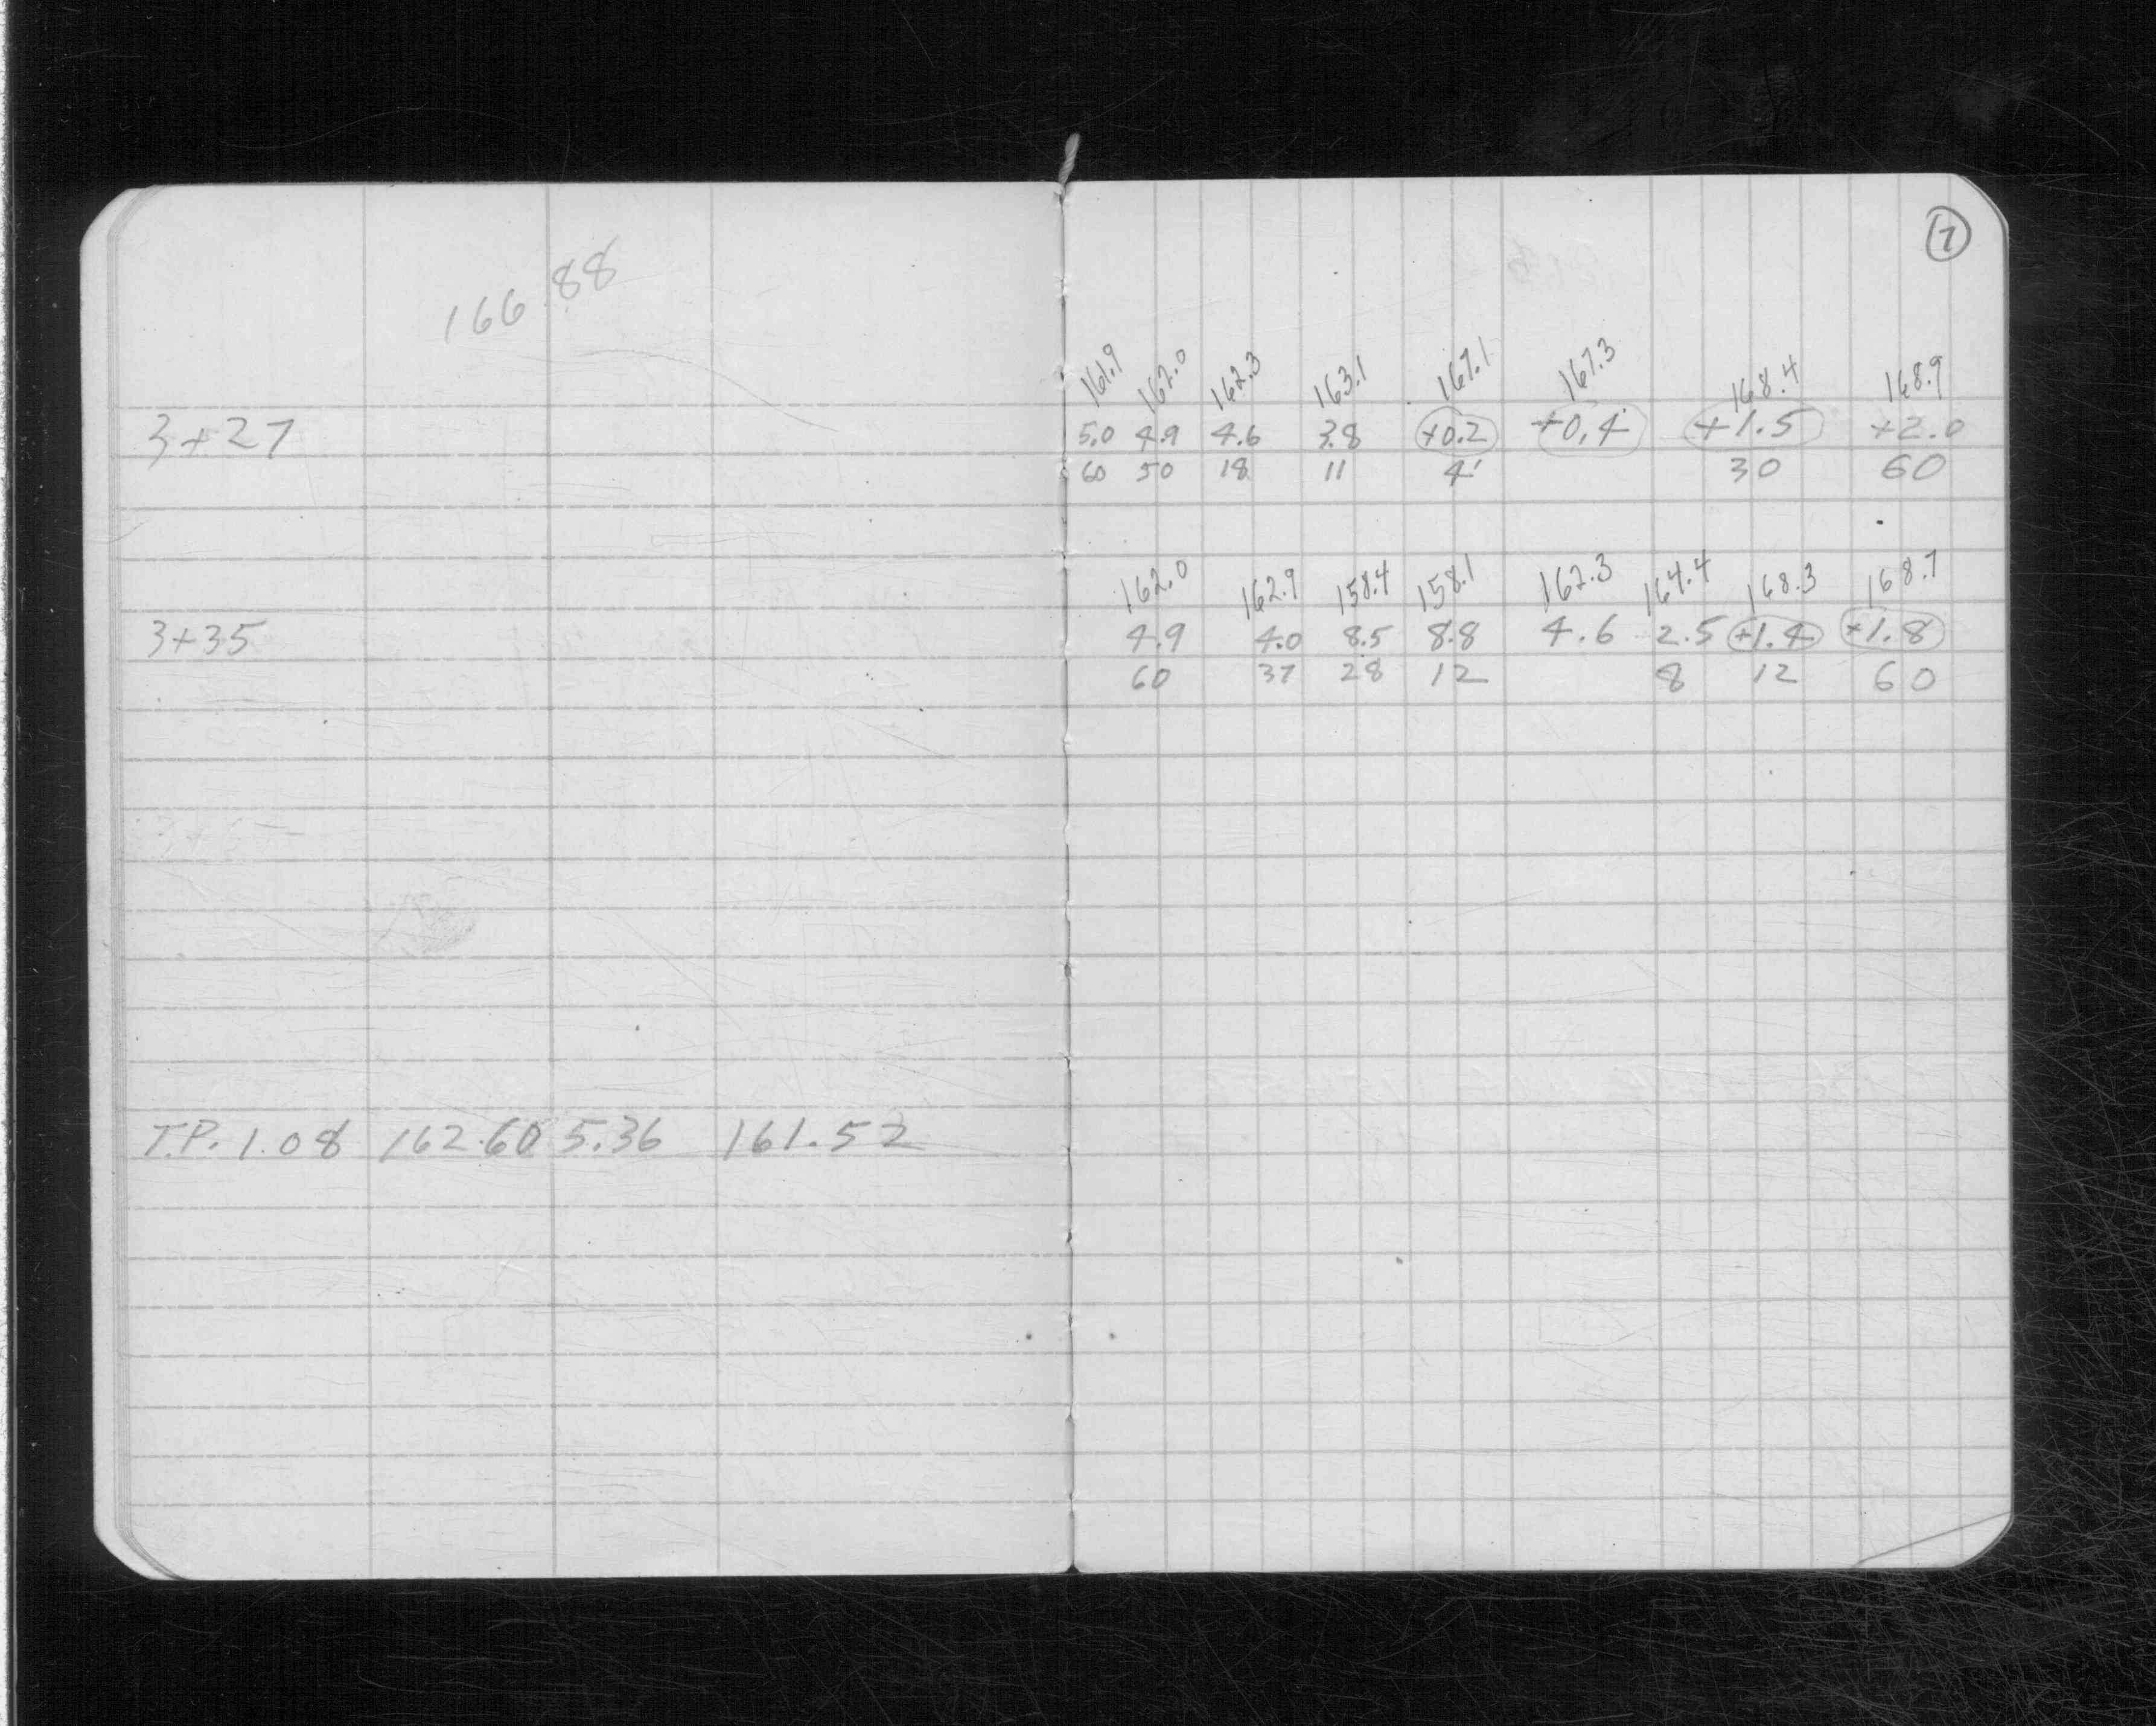 7
166.88
161.9 162.0 162.3 163.1 167.1 167.3 168.4 168.9
3+27 5.0 4.9 4.6 3.8 +0.2 +0.4 +1.5 +2.0
60 50 18 11 4' 30 60
162.0 162.9 158.4 158.1 162.3 164.4 168.3 168.7
3+35 4.9 4.0 8.5 8.8 4.6 2.5 +1.4 +1.8
60 37 28 12 8 12 60
T.P. 1.08 162.60 5.36 161.52